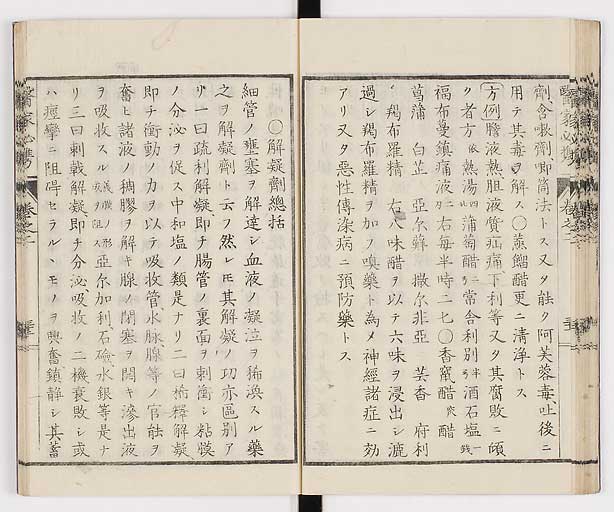 劑、含嗽劑、喞筒法トス又タ能ク阿芙蓉毒、吐後ニ
用テ其毒ヲ解ス〇蒸餾醋更ニ清淨トス
方例 膽液熱胆液質疝痛下利等又タ其腐敗ニ傾
ク者方 熱湯 四 蒲萄醋 二 常舎利別 半 酒石塩 一
福布曼鎮痛液 二 右毎半時二七〇香竄醋 醋
菖蒲 白芷 亞尔蘚 撒尔非亞 茴香 府利
羯布羅精 右八味醋ヲ以テ六味ヲ浸出シ漉
過シ羯布羅精ヲ加フ嗅藥ト為メ神經諸症ニ効
アリ又タ惡性傳染病ニ預防藥トス
醫家必携 卷之二
〇解凝劑總括
細管ノ壅塞ヲ解達シ血液ノ凝泣ヲ稀渙スル藥
之ヲ解凝劑ト云フ然レ𪜈其解凝ノ功亦區別ア
リ一曰疏利解凝、即チ腸管ノ裏面ヲ刺衝シ粘膜
ノ分泌ヲ促ス中和塩ノ類是ナリ二曰 稀釋解凝、
即チ衝動ノ力ヲ以テ吸收管水脉、腺等ノ官能ヲ
奮ヒ諸液ノ稠膠ヲ解キ腺ノ閉塞ヲ開キ滲出液
ヲ吸收スル 亞尔加利、石鹸水銀等是ナ
リ三曰刺戟解凝、即チ分泌、吸收ノ二機衰敗シ或
ハ痙攣ニ阻碍セラル丶モノヲ興奮鎮静シ其蓄
醫家必携 卷之二